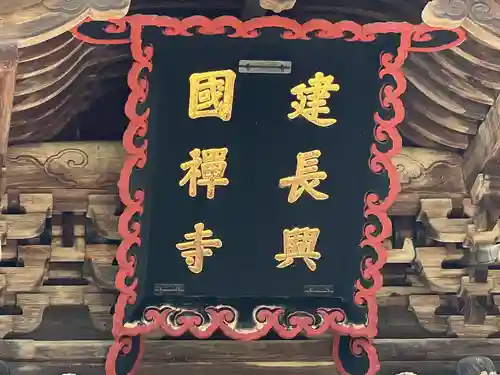 建長興
國禅寺